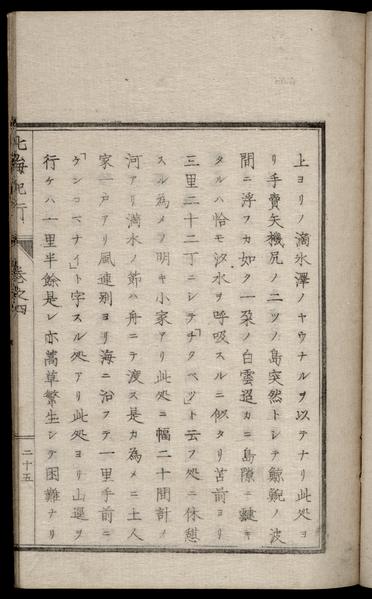 上ヨリノ滴水澤ノヤウナルヲ以テナリ此処ヨ
リ手賣矢機尻ノ二ツノ島突然トシテ鯨鯢ノ波
間ニ浮フカ如ク一朶ノ白雲迢カニ島隙ニ
タルハ恰モ汐水ヲ呼吸スルニ似タリ苫前ヨリ
三里二十二丁ニシテ「チクベツ」ト云フ処ニ休憩
スル為メノ明キ小家アリ此処ニ幅二十間計ノ
河アリ満水ノ節ハ舟ニテ渡ス是カ為メニ土人
家一戸アリ風連別ヨリ海ニ沿フテ一里手前ニ
「ケンコベナイ」ト字スル処アリ此処ヨリ山道ヲ
行ケハ一里半餘是レ亦蒿草繁生シテ困難ナリ
北海紀行 巻之四 二十五